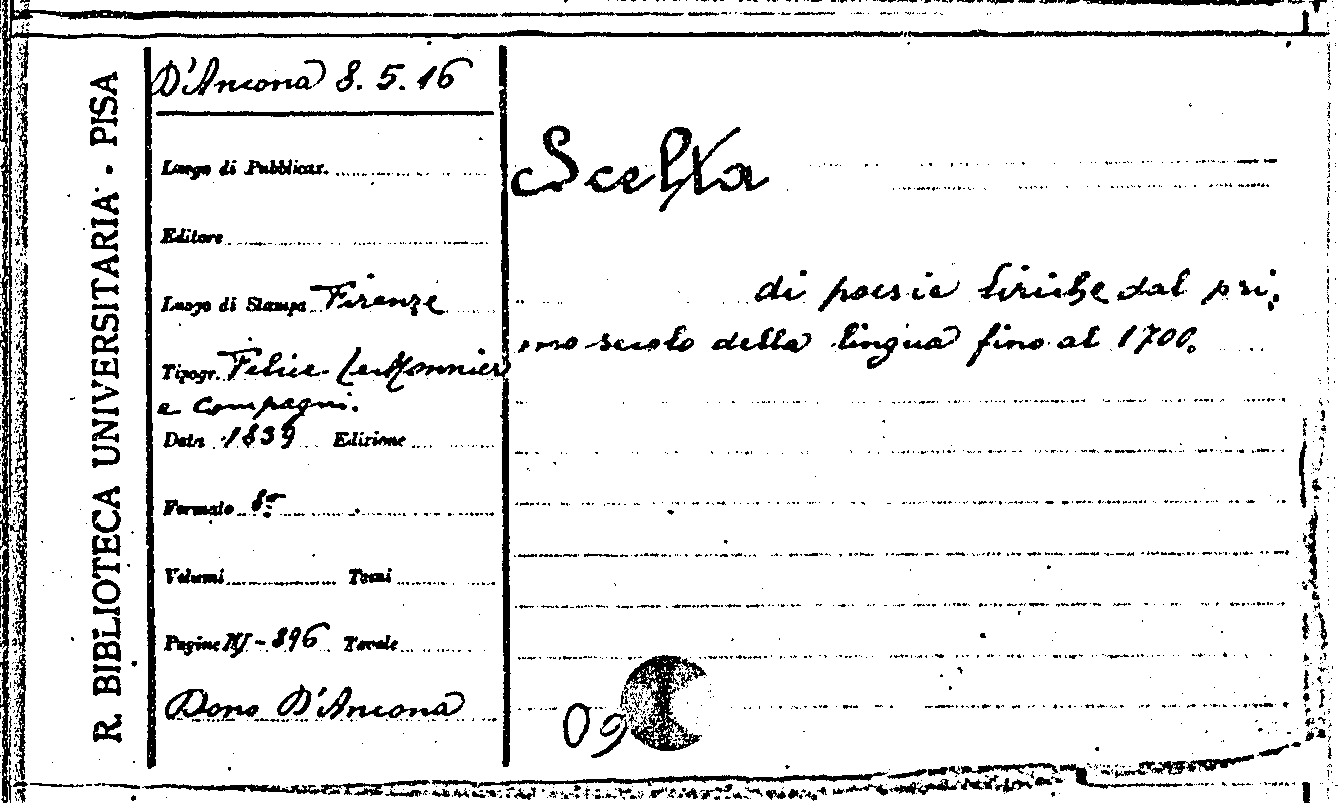 R. BIBLIOTECA UNIVERSITARIA - PISA
D'Ancona 8. 5. 16
Luogo di Pubblicaz.
Editore
Luogo di Stampa Firenze
Tipogr. Felice Le Monnier
e Compagni.
Data 1839 Edizione
Formato 8º
Volumi Tomi
Pagine XIJ - 896 Tavole
Dono D'Ancona
Scelta
di poesie liriche dal pri,
mo secolo della lingua fino al 1700.
09